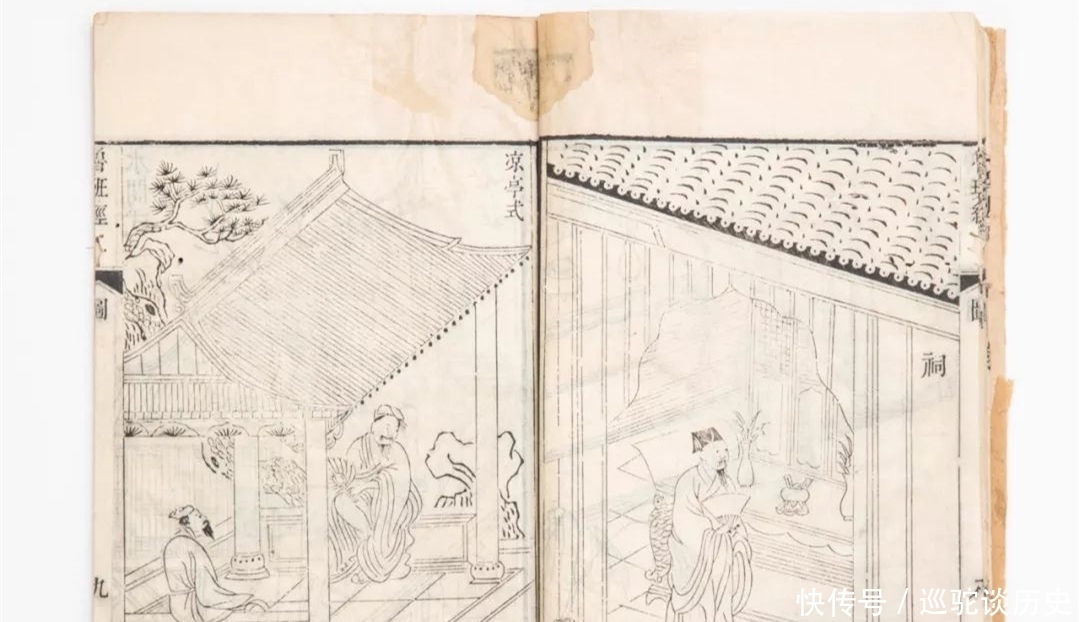 涼亭式
祠
魯班經
圖
九
快传号 / 巡驼谈历史